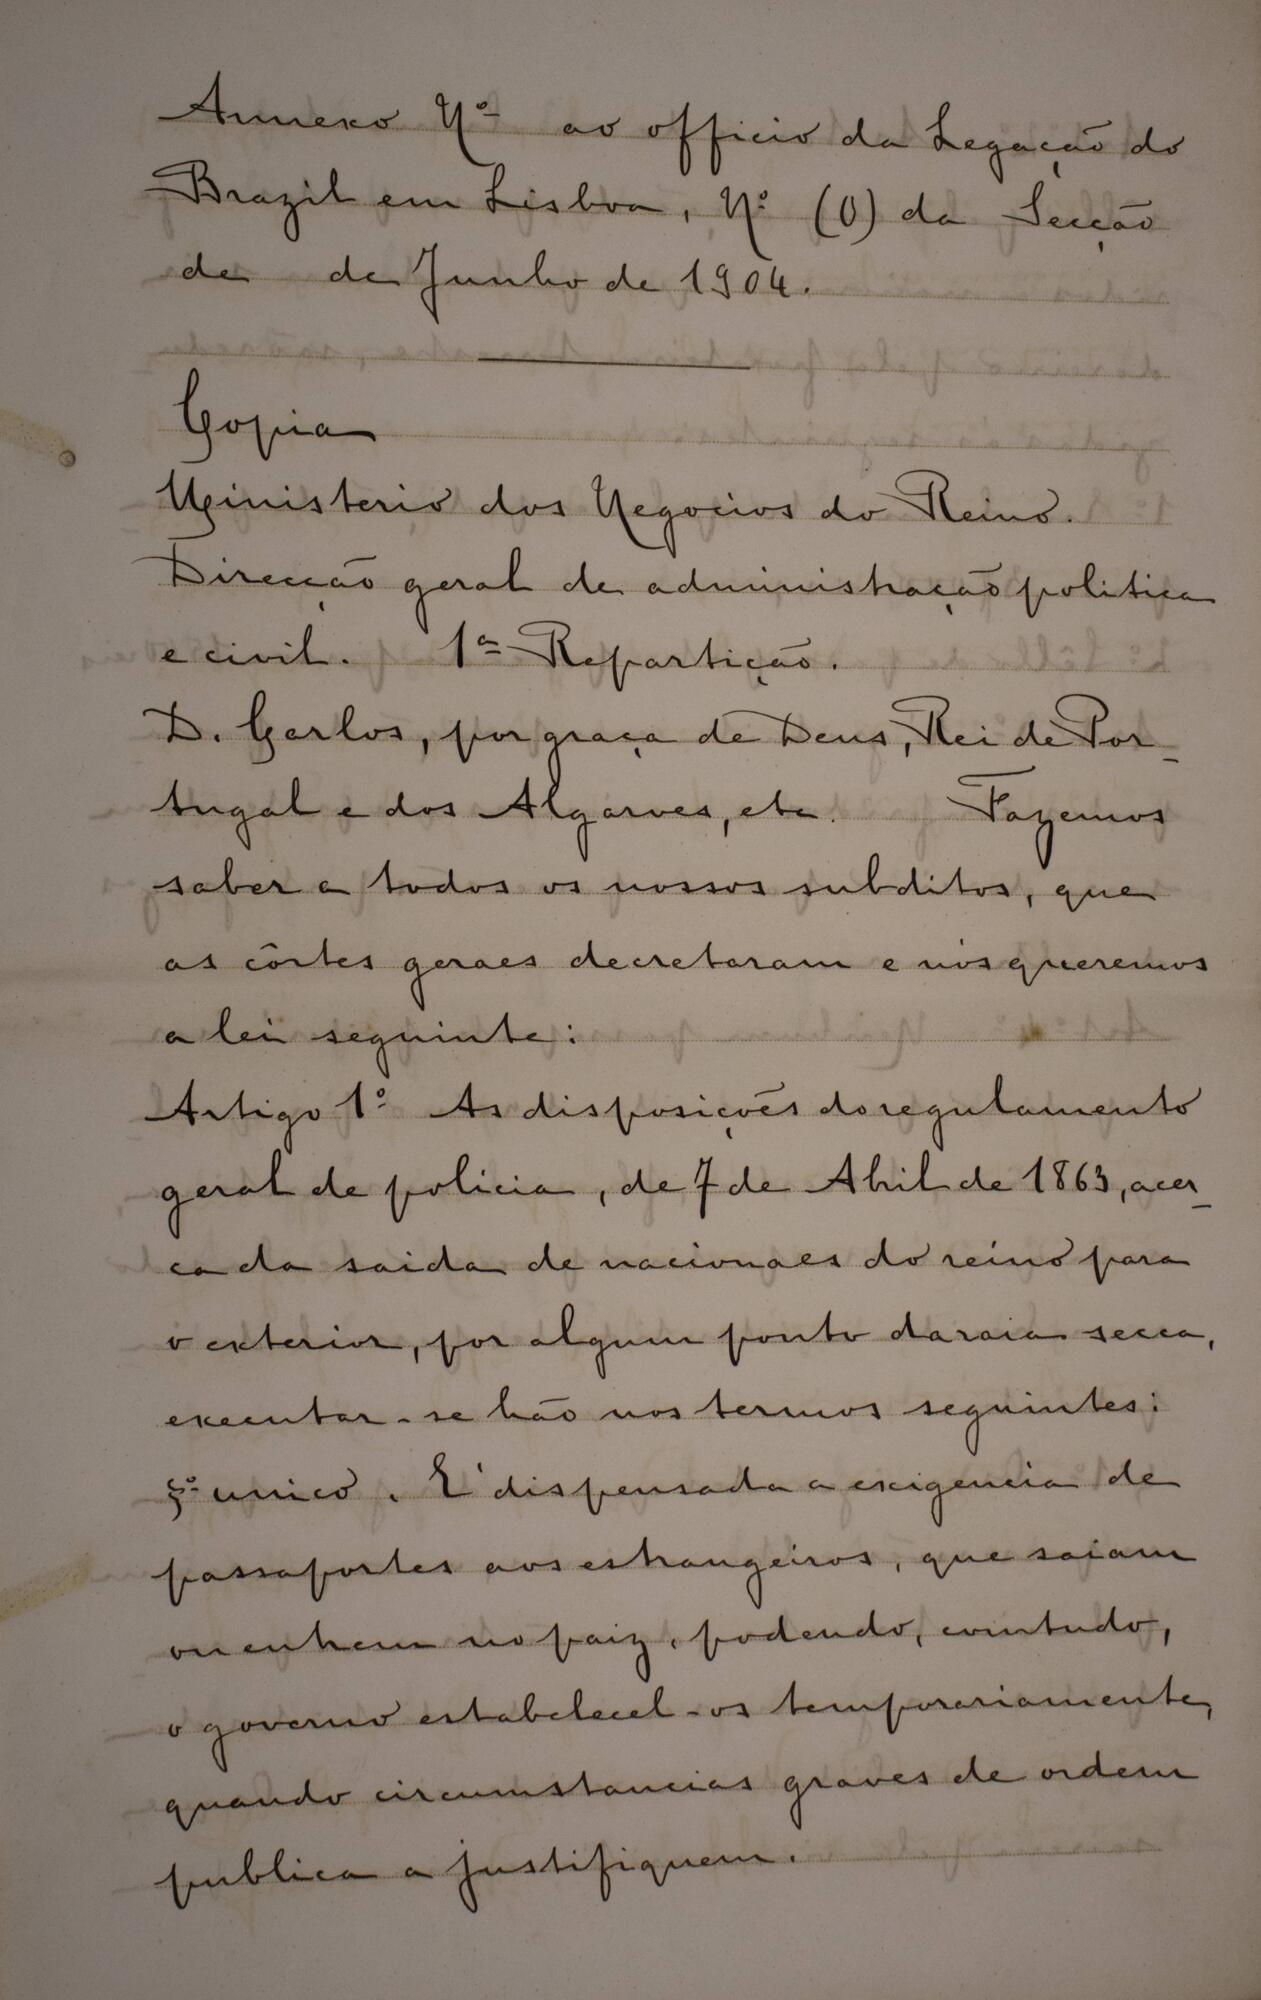 Annexo Nº ao officio da Legação do
Brazil em Lisboa, Nº (0) da Secção
de de Junho de 1904.
Copia
Ministerio dos Negocios do Reino.
Direcção geral de administração politica
e civil. 1ª Repartição.
D. Carlos, por graça de Deus, Rei de Por-
tugal e dos Algarves, etc. Fazemos
saber a todos os nossos subditos, que
as côrtes geraes decretaram e nós queremos
a lei seguinte:
Artigo 1º As disposições do regulamento
geral de policia, de 7 de Abril de 1863, acer-
ca da saida de nacionaes do reino para
o exterior, por algum ponto da raia secca,
executar-se hão nos termos seguintes:
§º unico. E' dispensada a exigencia de
passaportes aos estrangeiros, que saiam
ou entrem no paiz, podendo, comtudo,
o governo estabelecel-os temporariamente,
quando circumstancias graves de ordem
publica a justifiquem.